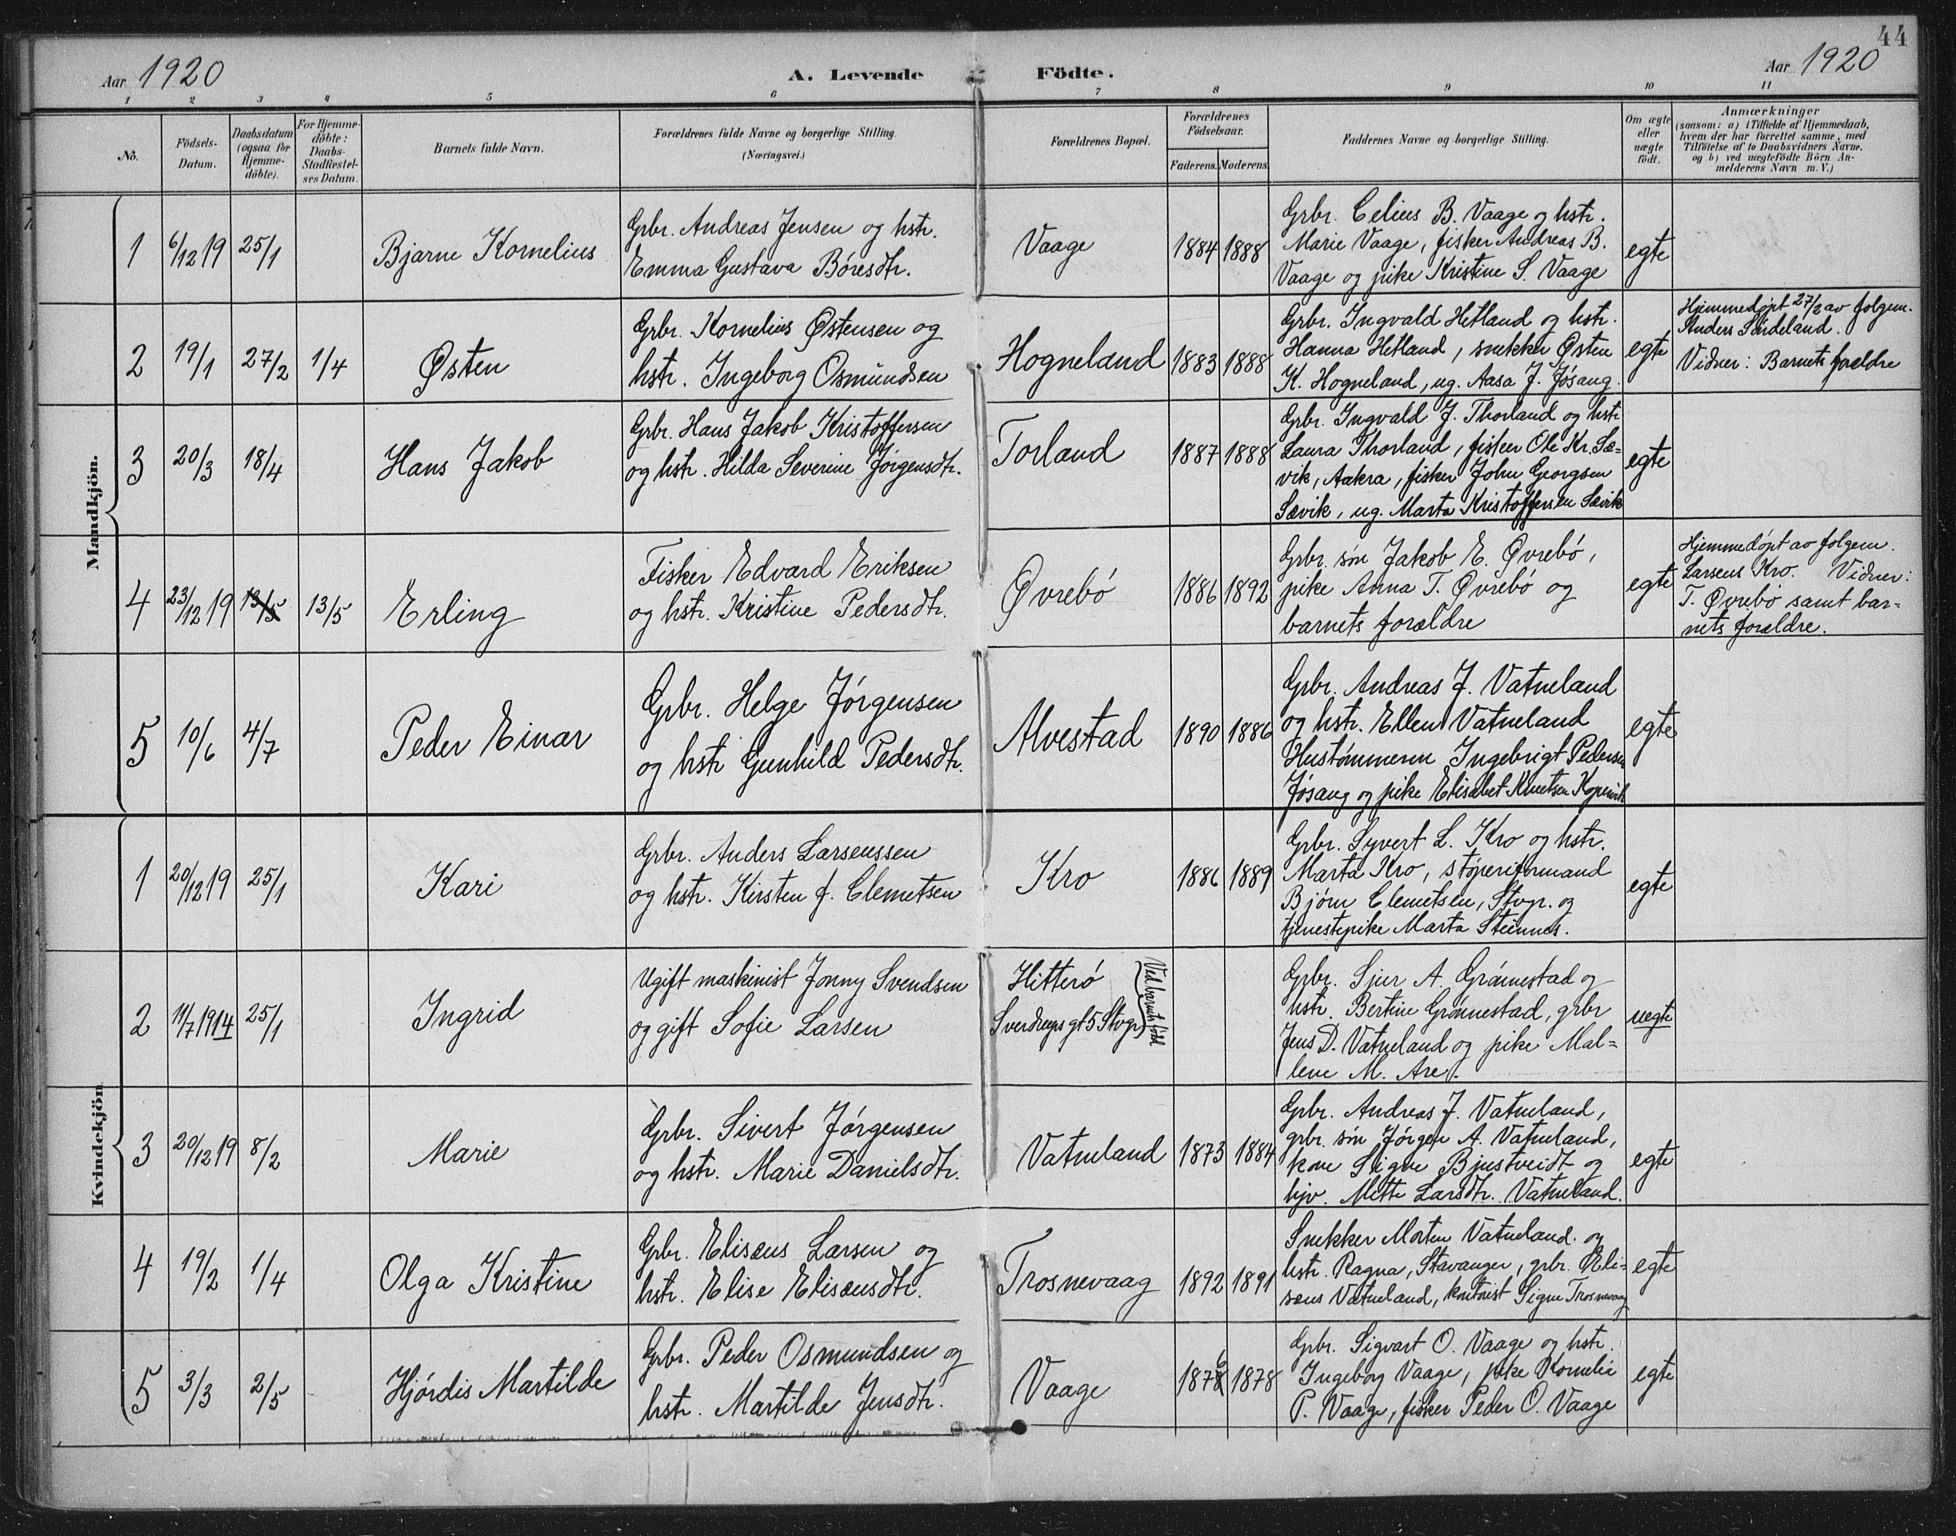 44
Aar 1920
A. Levende Födte.
Aar 1920
1 2 3 4 5 6 7 8 9 10 11
No.
Födsels-
Datum.
Daabsdatum
(ogsaa for
Hjemme-
döbte).
For Hjemme-
döbte:
Daabs-
Stadfæstel-
ses Datum.
Barnets fulde Navn.
Forældrenes fulde Navne og borgerlige Stilling
(Næringsvei.)
Forældrenes Bopæl.
Forældrenes
Födselsaar.
Faderens. Moderens.
Faddernes Navne og borgerlige Stilling.
Om ægte
eller
uægte
födt.
Anmærkninger
(saasom: a) i Tilfælde af Hjemmedaab,
hvem der har forrettet samme, med
Tilföielse af to Daabsvidners Navne.
og b) ved uægtefödte Börn An-
melderens Navn m. V.)
Mandkjön.
1 6/12 19 25/1 Bjarne Kornelius
Grbr. Andreas Jensen og hstr.
Emma Gustava Børesdtr.
Vaage 1884 1888
Grbr. Celius B. Vaage og hstr.
Marie Vaage, fisker Andreas B.
Vaage og pike Kristine S. Vaage
egte
2 19/1 27/2 1/4 Østen
Grbr. Kornelius Østensen og
hstr. Ingeborg Osmundsen
Hogneland 1883 1888
Grbr. Ingvald Hetland og hstr.
Hanna Hetland, snekker Østen
K. Hogneland, ug. Aasa J. Jøsang.
egte
Hjemmedøpt 27/2 av folgem.
Anders Sørdeland.
Vidner: Barnets forældre
3 20/3 18/4 Hans Jakob
Grbr. Hans Jakob Kristoffersen
og hstr. Hilda Severine Jørgensdtr.
Torland 1887 1888
Grbr. Ingvald J. Thorland og hstr
Laura Thorland, fisker Ole Kr. Sæ-
vik, Aakra, fisker John Georgsen
Sævik, ug. Marta Kristoffersen Sævik
egte
4 23/12 19 13/5 13/5 Erling
Fisker Edvard Eriksen
og hstr. Kristine Pedersdtr.
Øvrebø 1886 1892
Grbr. søn Jakob E. Øvrebø,
pike Anna T. Øvrebø og
barnets forældre
egte
Hjemmedøpt av folgem.
Larsens Kro. Vidner:
T. Øvrebø samt bar-
nets forældre.
5 10/6 4/7 Peder Einar
Grbr. Helge Jørgensen
og hstr Gunhild Pedersdtr.
Alvestad 1890 1886
Grbr. Andreas J. Vatneland
og hstr. Ellen Vatneland
Hustømmerm Ingebrigt Pedersen
Jøsang og pike Elisabet Knutsen Kopervik
egte
Kvindekjön
1 20/12 19 25/1 Kari
Grbr. Anders Larsenssen
og hstr. Kirsten f. Clemetsen
Kro 1886 1889
Grbr. Syvert L. Kro og hstr.
Marta Kro, støperiformand
Bjørn Clemetsen, Stvgr. og
tjenestepike Marta Steinnes.
egte
2 11/7 1914 25/1 Ingrid
Ugift maskinist Jonny Svendsen
og gift Sofie Larsen
Hitterø
Sverdrups gt 5 Stvgr
Ved barnets fødsel
Grbr. Sjur A. Grønnestad og
hstr. Bertine Grønnestad, grbr
Jens D. Vatneland og pike Mal-
lene M. Are.
uegte
3 20/12 19 8/2 Marie
Grbr. Sivert Jørgensen
og hstr. Marie Danielsdtr.
Vatneland 1873 1884
Grbr. Andreas J. Vatneland,
grbr. søn Jørgen A. Vatneland,
kone Signe Bjustveidt og
hjv. Mette Larsdtr. Vatneland.
egte
4 19/2 1/4 Olga Kristine
Grbr. Elisæus Larsen og
hstr. Elise Elisæusdtr.
Trosnevaag 1892 1891
Snekker Morten Vatneland og
hstr. Ragna, Stavanger, grbr. Eli-
sæus Vatneland, kontorist Signe Trosnevaag
egte
5 3/3 2/5 Hjørdis Martilde
Grbr. Peder Osmundsen og
hstr. Martilde Jensdtr.
Vaage 1876 1878
Grbr. Sigvart O. Vaage og hstr.
Ingeborg Vaage, pike Kornelie
P. Vaage, fisker Peder O. Vaage
egte